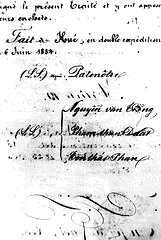 signé le présent Traité et y ont apposé
leurs cachets.
Fait à Hué, en double expédition
6 Juin 1884.
(L.S.) signé: Patenôtre
Nguyễn văn Tường
(L.S.) Phạm thận Duật
Tôn thất Phan